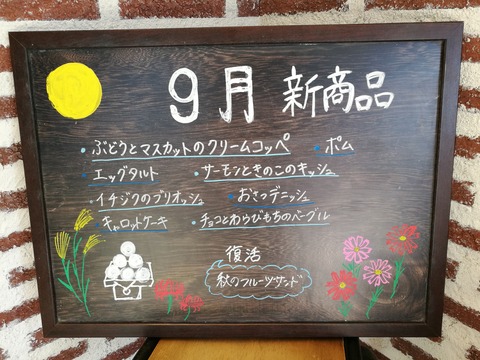 9月 新商品
・ぶどうとマスカットのクリームコッペ ・ポム
・エッグタルト ・サーモンときのこのキッシュ
・イチジクのブリオッシュ ・おさつデニッシュ
・キャロットケーキ ・チョコとわらびもちのベーグル
復活
秋のフルーツサンド